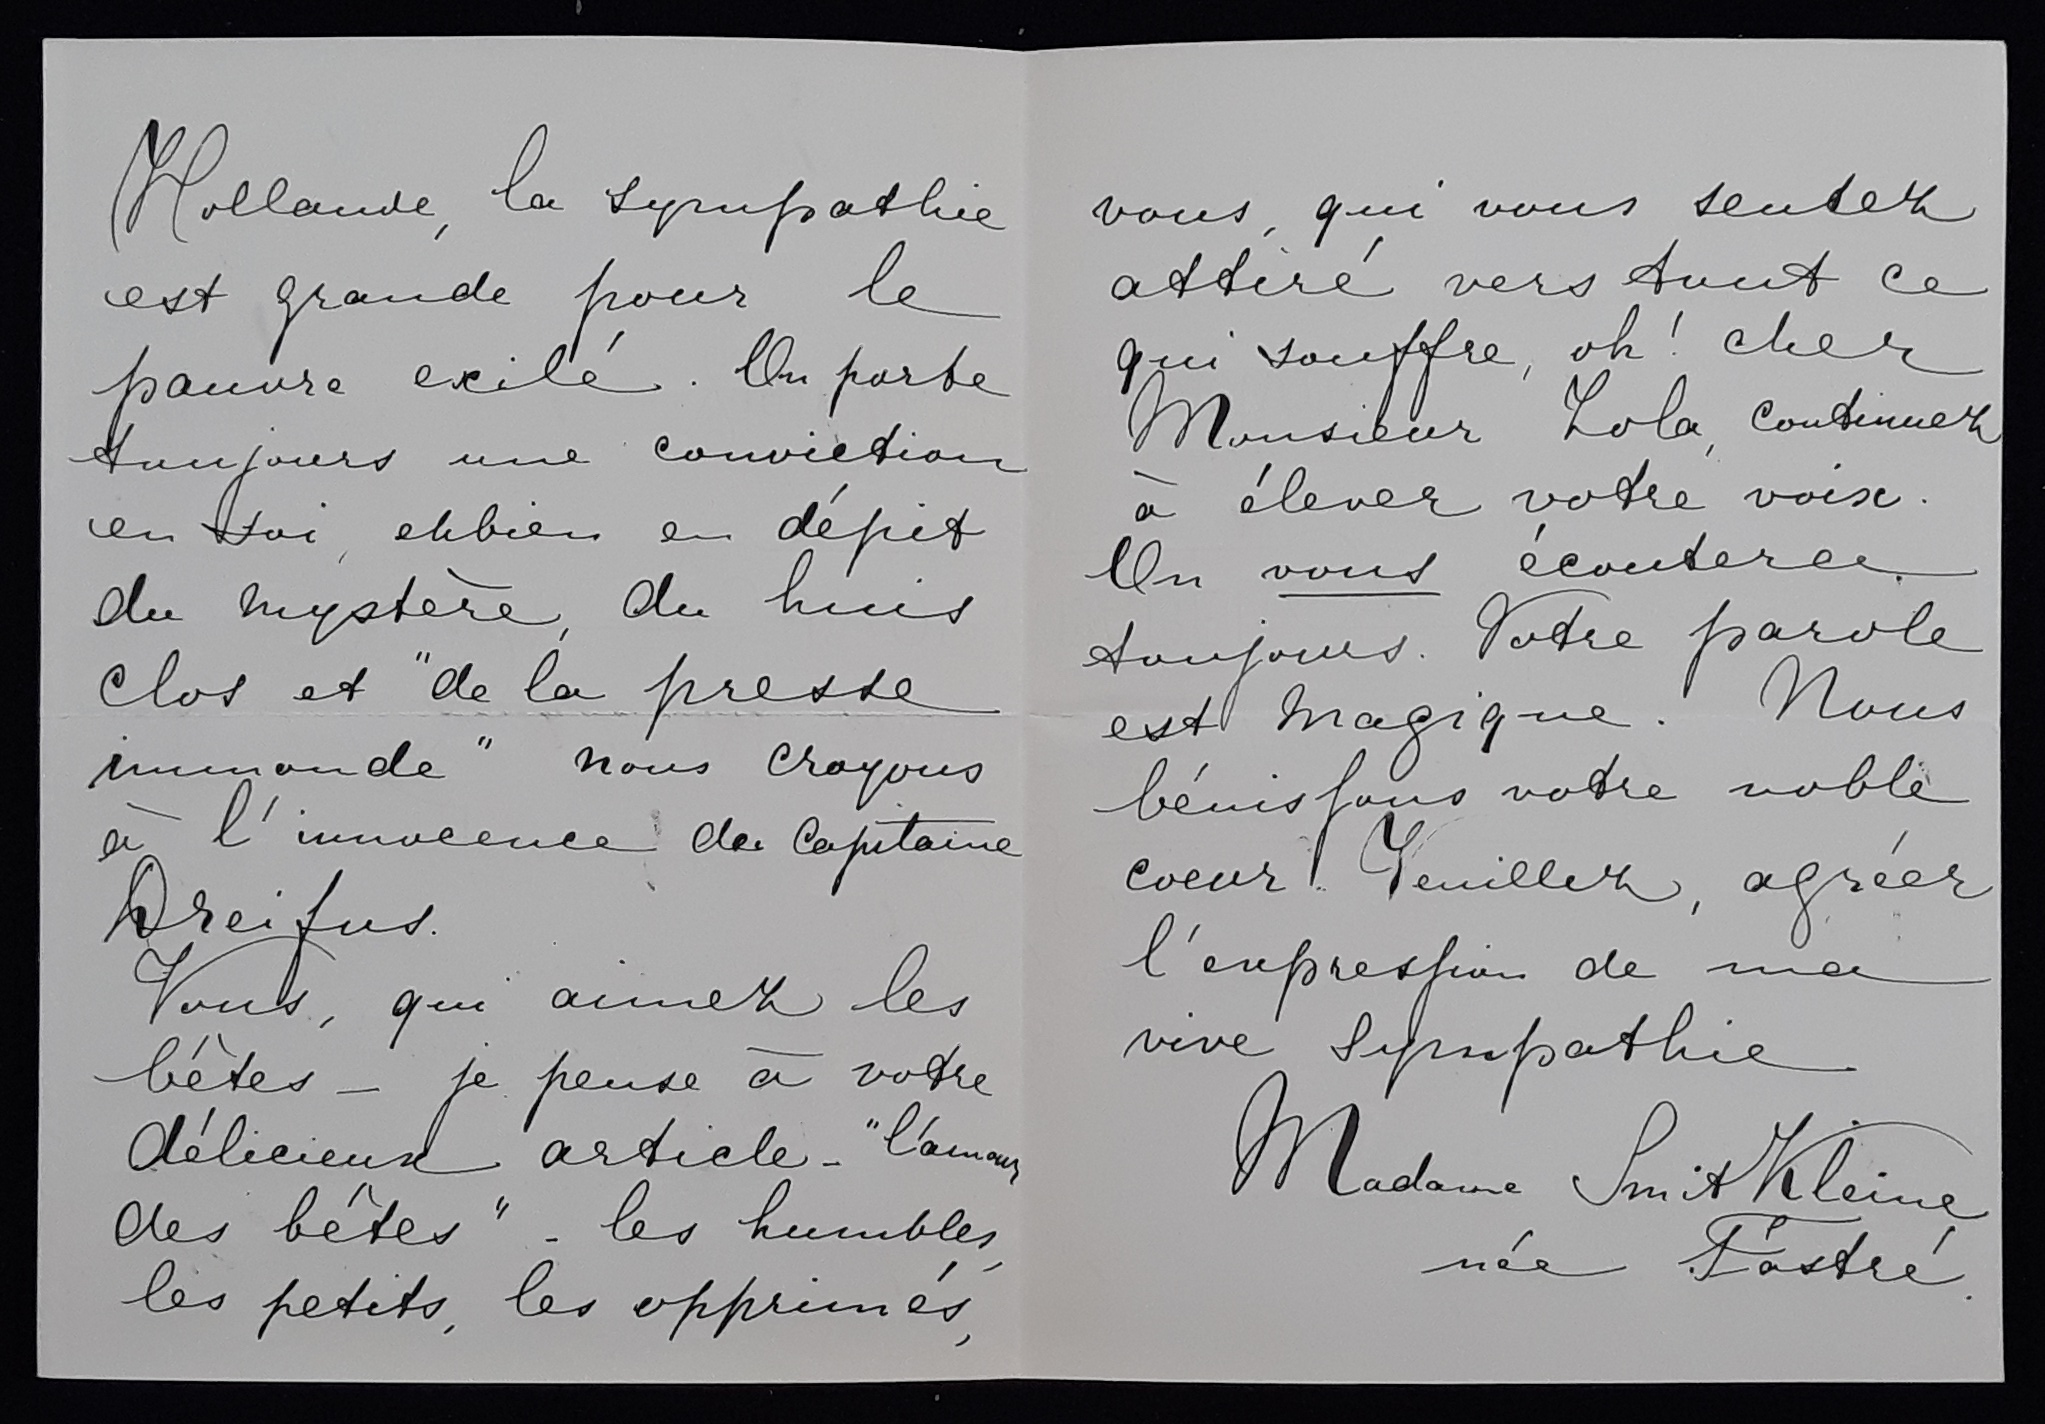 Hollande, la sympathie
est grande pour le
pauvre exilé. On porte
toujours une conviction
en soi, ehbien en dépit
du mystère, du huis
clos et "de la presse
immonde" nous croyons
à l'innocence du capitaine
Dreifus.
Vous, qui aimez les
bêtes - je pense à votre
délicieux article - "l'amour
des bêtes" - les humbles,
les petits, les opprimés,
vous, qui vous sentez
attiré vers tout ce
qui souffre, oh! cher
Monsieur Zola, continuez
à élever votre voix.
On vous écoutera
toujours. Votre parole
est magique. Nous
bénissons votre noble
coeur. Veuillez, agréer
l'expression de ma
vive sympathie
Madame Smit Kleine
née Fastré.